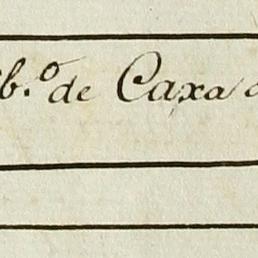 b.º de Caxa